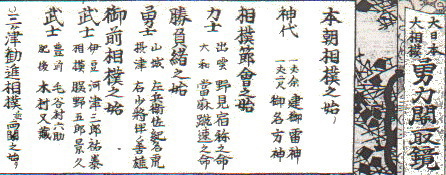 大日本
大相撲
勇力関取鏡
本朝相撲之始
神代
一丈余 建御雷神
一丈尺 御名方神
相撲節會之始
力士
出雲 野見宿祢之命
大和 當麻蹴速之命
勝負緒之始
勇士
山城 左兵衛佐紀名虎
摂津 右少将伴善雄
御前相撲之始
武士
伊豆 河津三郎祐泰
相模 俣野五郎景久
武士
豊前 毛谷村六助
肥後 木村又蔵
三津勧進相撲